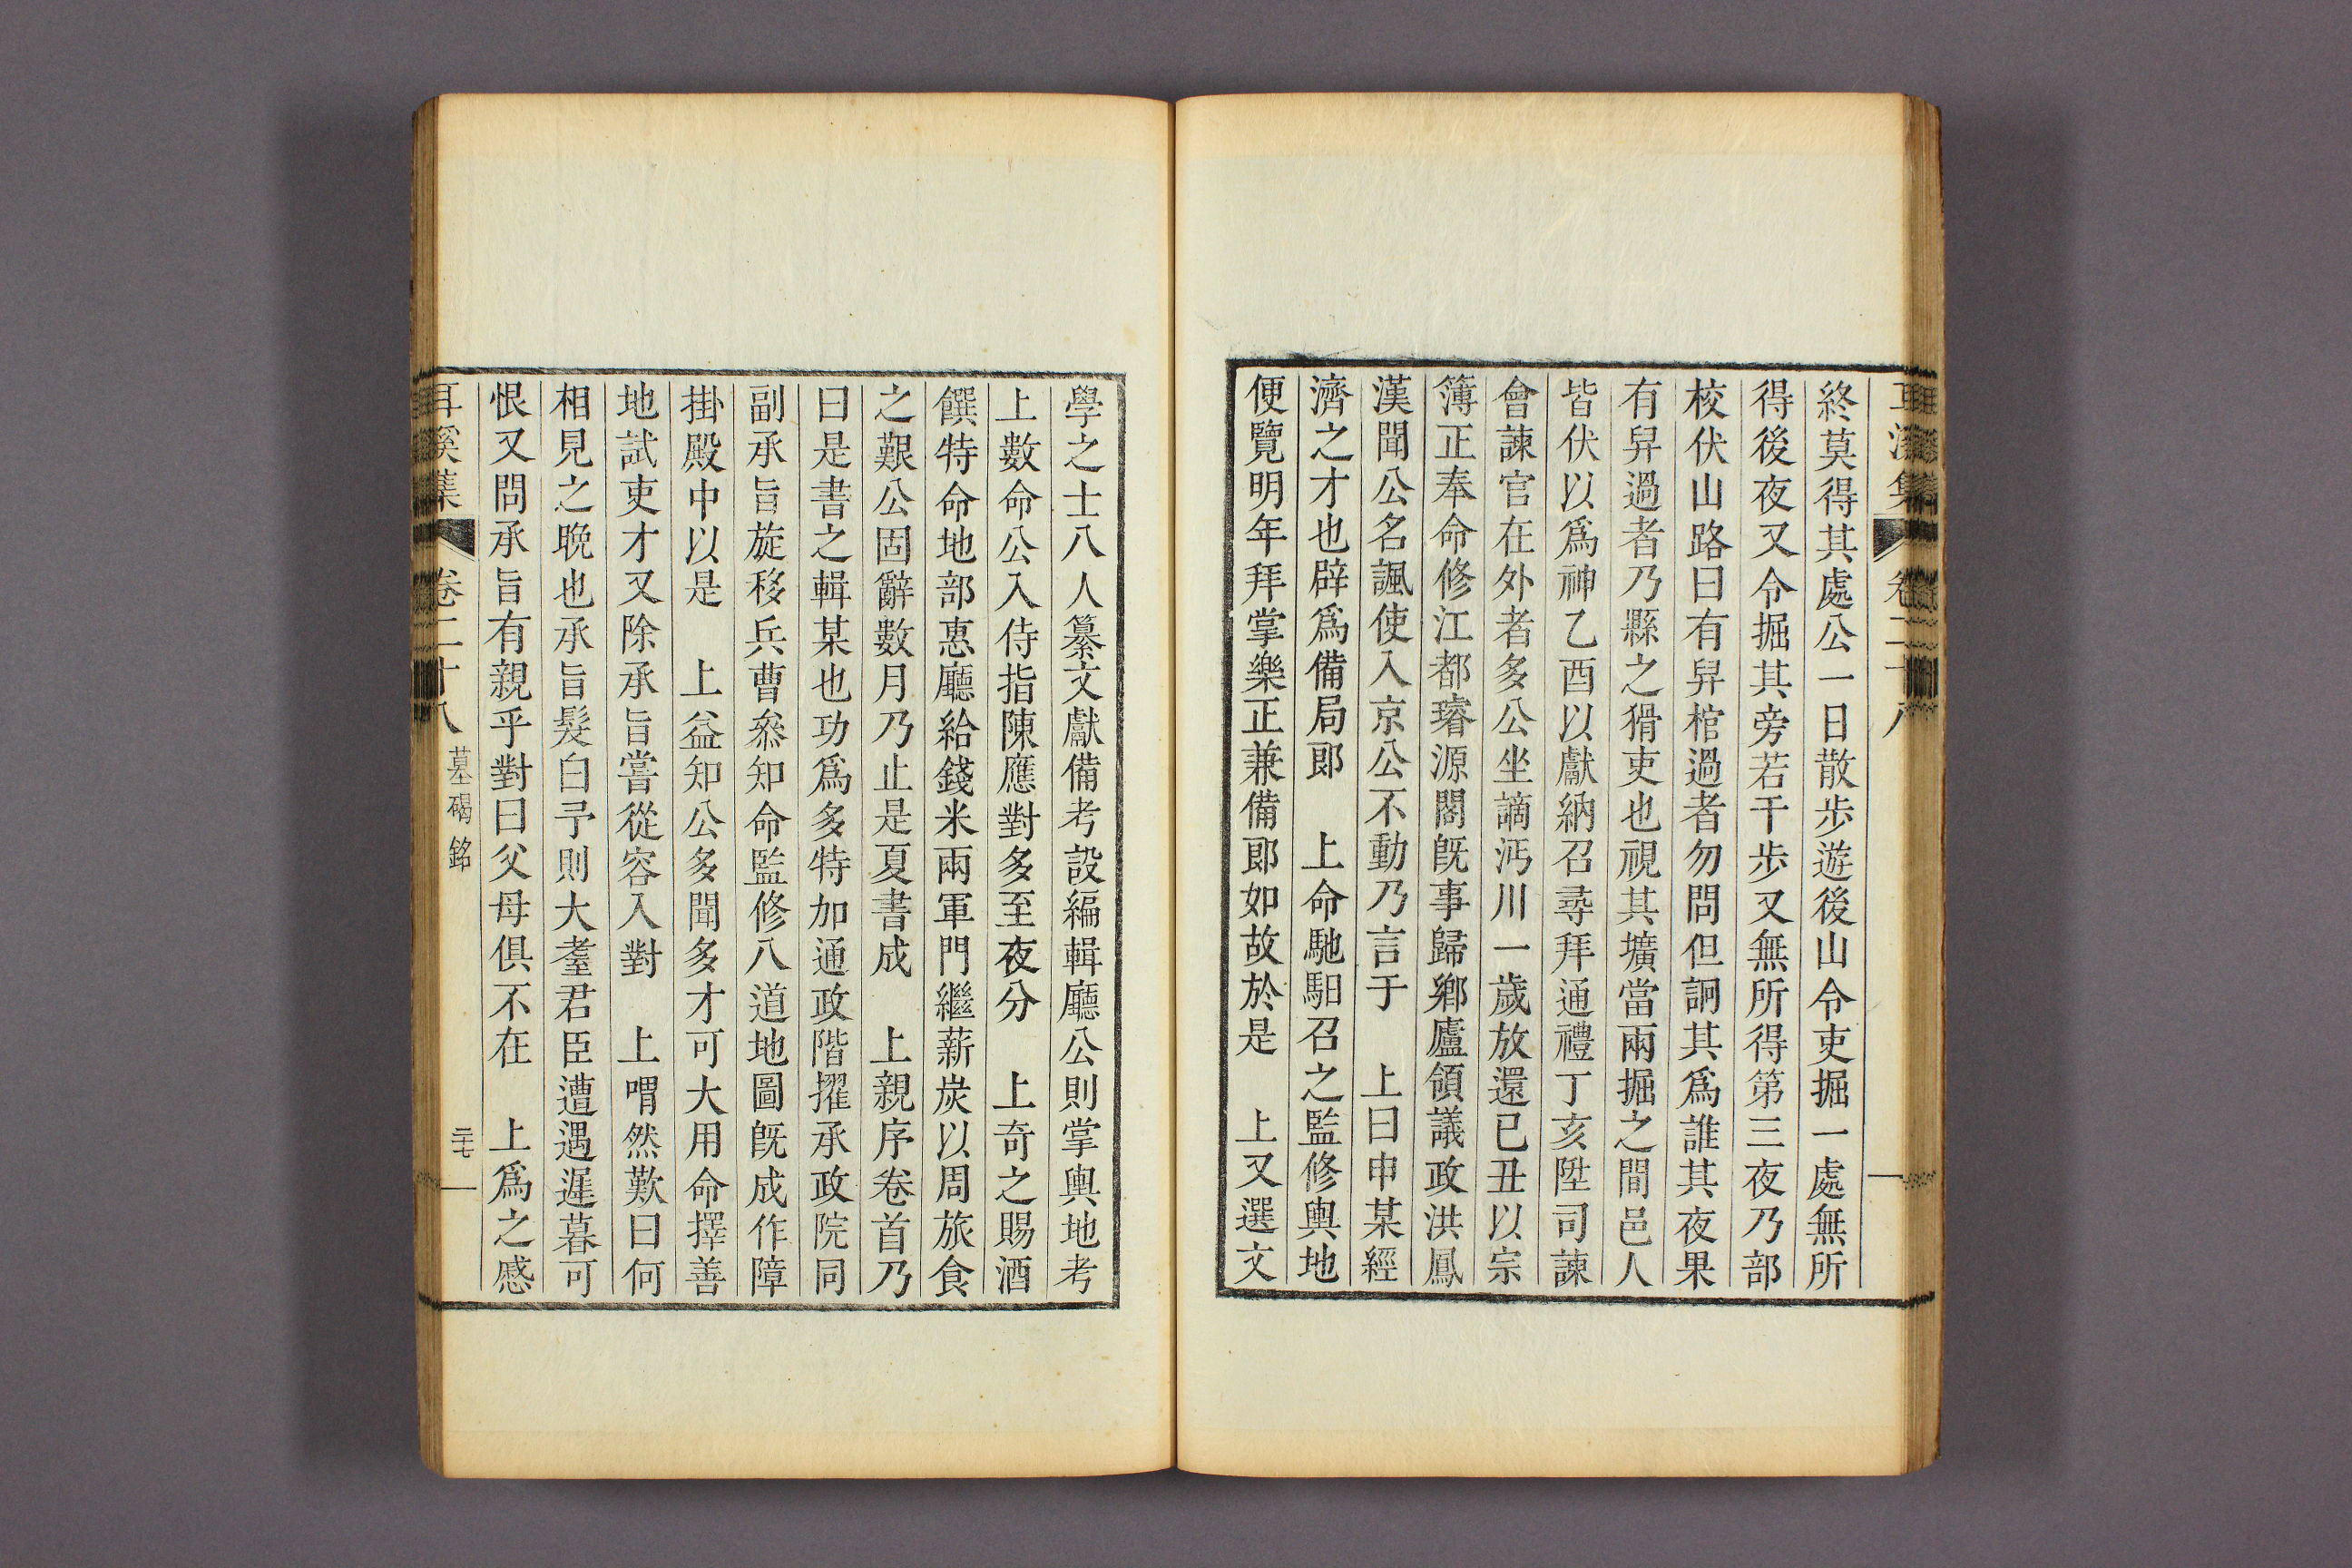 耳溪集 卷二十八
終莫得其處公一日散步遊後山令吏掘一處無所
得後夜又令掘其旁若干步又無所得第三夜乃部
校伏山路曰有舁棺過者勿問但詗其爲誰其夜果
有舁過者乃縣之猾吏也視其壙當兩掘之間邑人
皆伏以爲神乙酉以獻納召尋拜通禮丁亥陞司諫
會諫官在外者多公坐謫沔川一歲放還已丑以宗
簿正奉命修江都璿源閣旣事歸鄕廬領議政洪鳳
漢聞公名諷使入京公不動乃言于 上曰申某經
濟之才也辟爲備局郞 上命馳馹召之監修輿地
便覽明年拜掌樂正兼備郞如故於是 上又選文
學之士八人纂文獻備考設編輯廳公則掌輿地考
上數命公入侍指陳應對多至夜分 上奇之賜酒
饌特命地部惠廳給錢米兩軍門繼薪炭以周旅食
之艱公固辭數月乃止是夏書成 上親序卷首乃
曰是書之輯某也功爲多特加通政階擢承政院同
副承旨旋移兵曹叅知命監修八道地圖旣成作障
掛殿中以是 上益知公多聞多才可大用命擇善
地試吏才又除承旨嘗從容入對 上喟然歎曰何
相見之晩也承旨髮白予則大耋君臣遭遇遲暮可
恨又問承旨有親乎對曰父母俱不在 上爲之慼
耳溪集 卷二十八 墓碣銘 二十七